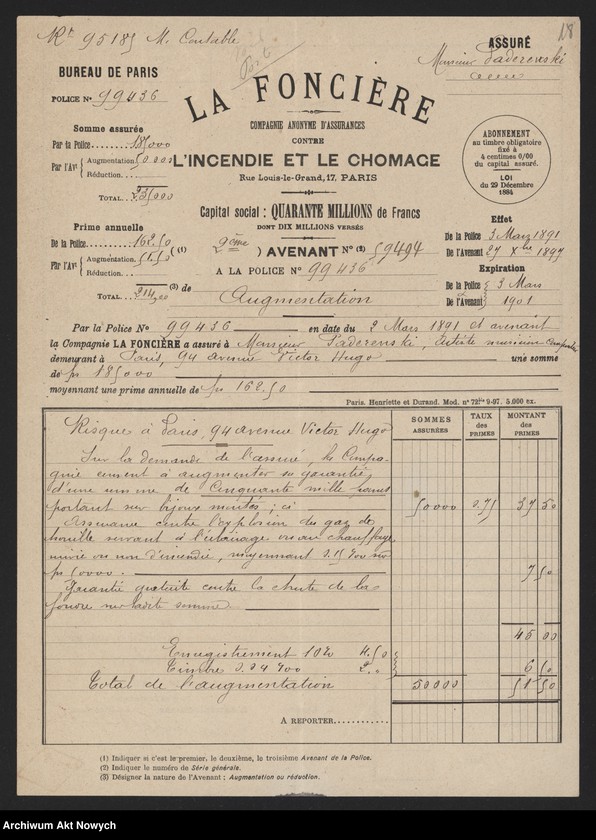 Rt 95185 M. Contable
18
ASSURÉ
Monsieur Paderewski
BUREAU DE PARIS
POLICE No 99436
LA FONCIÈRE
COMPAGNIE ANONYME D'ASSURANCES
CONTRE
L'INCENDIE ET LE CHOMAGE
Rue Louis-le-Grand, 17, PARIS
Capital social : QUARANTE MILLIONS de Francs
DONT DIX MILLIONS VERSÉS
Somme assurée
Par la Police 185000
Par l'Avt Augmentation 50000
Réduction
TOTAL 235000
ABONNEMENT
au timbre obligatoire
fixé à
4 centimes 0/00
du capital assuré.
LOI
du 29 Décembre
1884
Prime annuelle
De la Police 162.50
Par l'Avt Augmentation 51.50
Réduction
TOTAL 214,00
(1) 2ème ) AVENANT No (2) 59494
A LA POLICE No 99436
(3) de Augmentation
Effet
De la Police 3 Mars 1891
De l'Avenant 27 Xbre 1897
Expiration
De la Police 3 Mars
De l'Avenant 1901
Par la Police No 99436 en date du 2 Mars 1891 et avenant
la Compagnie LA FONCIÈRE a assuré à Monsieur Paderewski, Artiste musicien compositeur
demeurant à Paris, 94 avenue Victor Hugo une somme
de fr 185000
moyennant une prime annuelle de fr 162.50
Paris. Henriette et Durand. Mod. n° 72bis 9-97. 5.000 ex.
SOMMES ASSURÉES
TAUX des PRIMES
MONTANT des PRIMES
Risque à Paris, 94 avenue Victor Hugo
Sur la demande de l'assuré, la Compa-
gnie consent à augmenter sa garantie
d'une somme de Cinquante mille francs
portant sur bijoux montés ; ci 50000 0.75 37 50
Assurance contre l'explosion du gaz de
houille servant à l'éclairage ou au chauffage
suivie ou non d'incendie, moyennant 0.15 %00 sur
fr 50000. 7 50
Garantie gratuite contre la chute de la
foudre sur ladite somme
45 00
Enregistrement 10% 4.50
Timbre 0.04 %00 2.. 6 50
Total de l'augmentation 50000 51 50
A REPORTER
(1) Indiquer si c'est le premier, le deuxième, le troisième Avenant de la Police.
(2) Indiquer le numéro de Série générale.
(3) Désigner la nature de l'Avenant ; Augmentation ou réduction.
Archiwum Akt Nowych